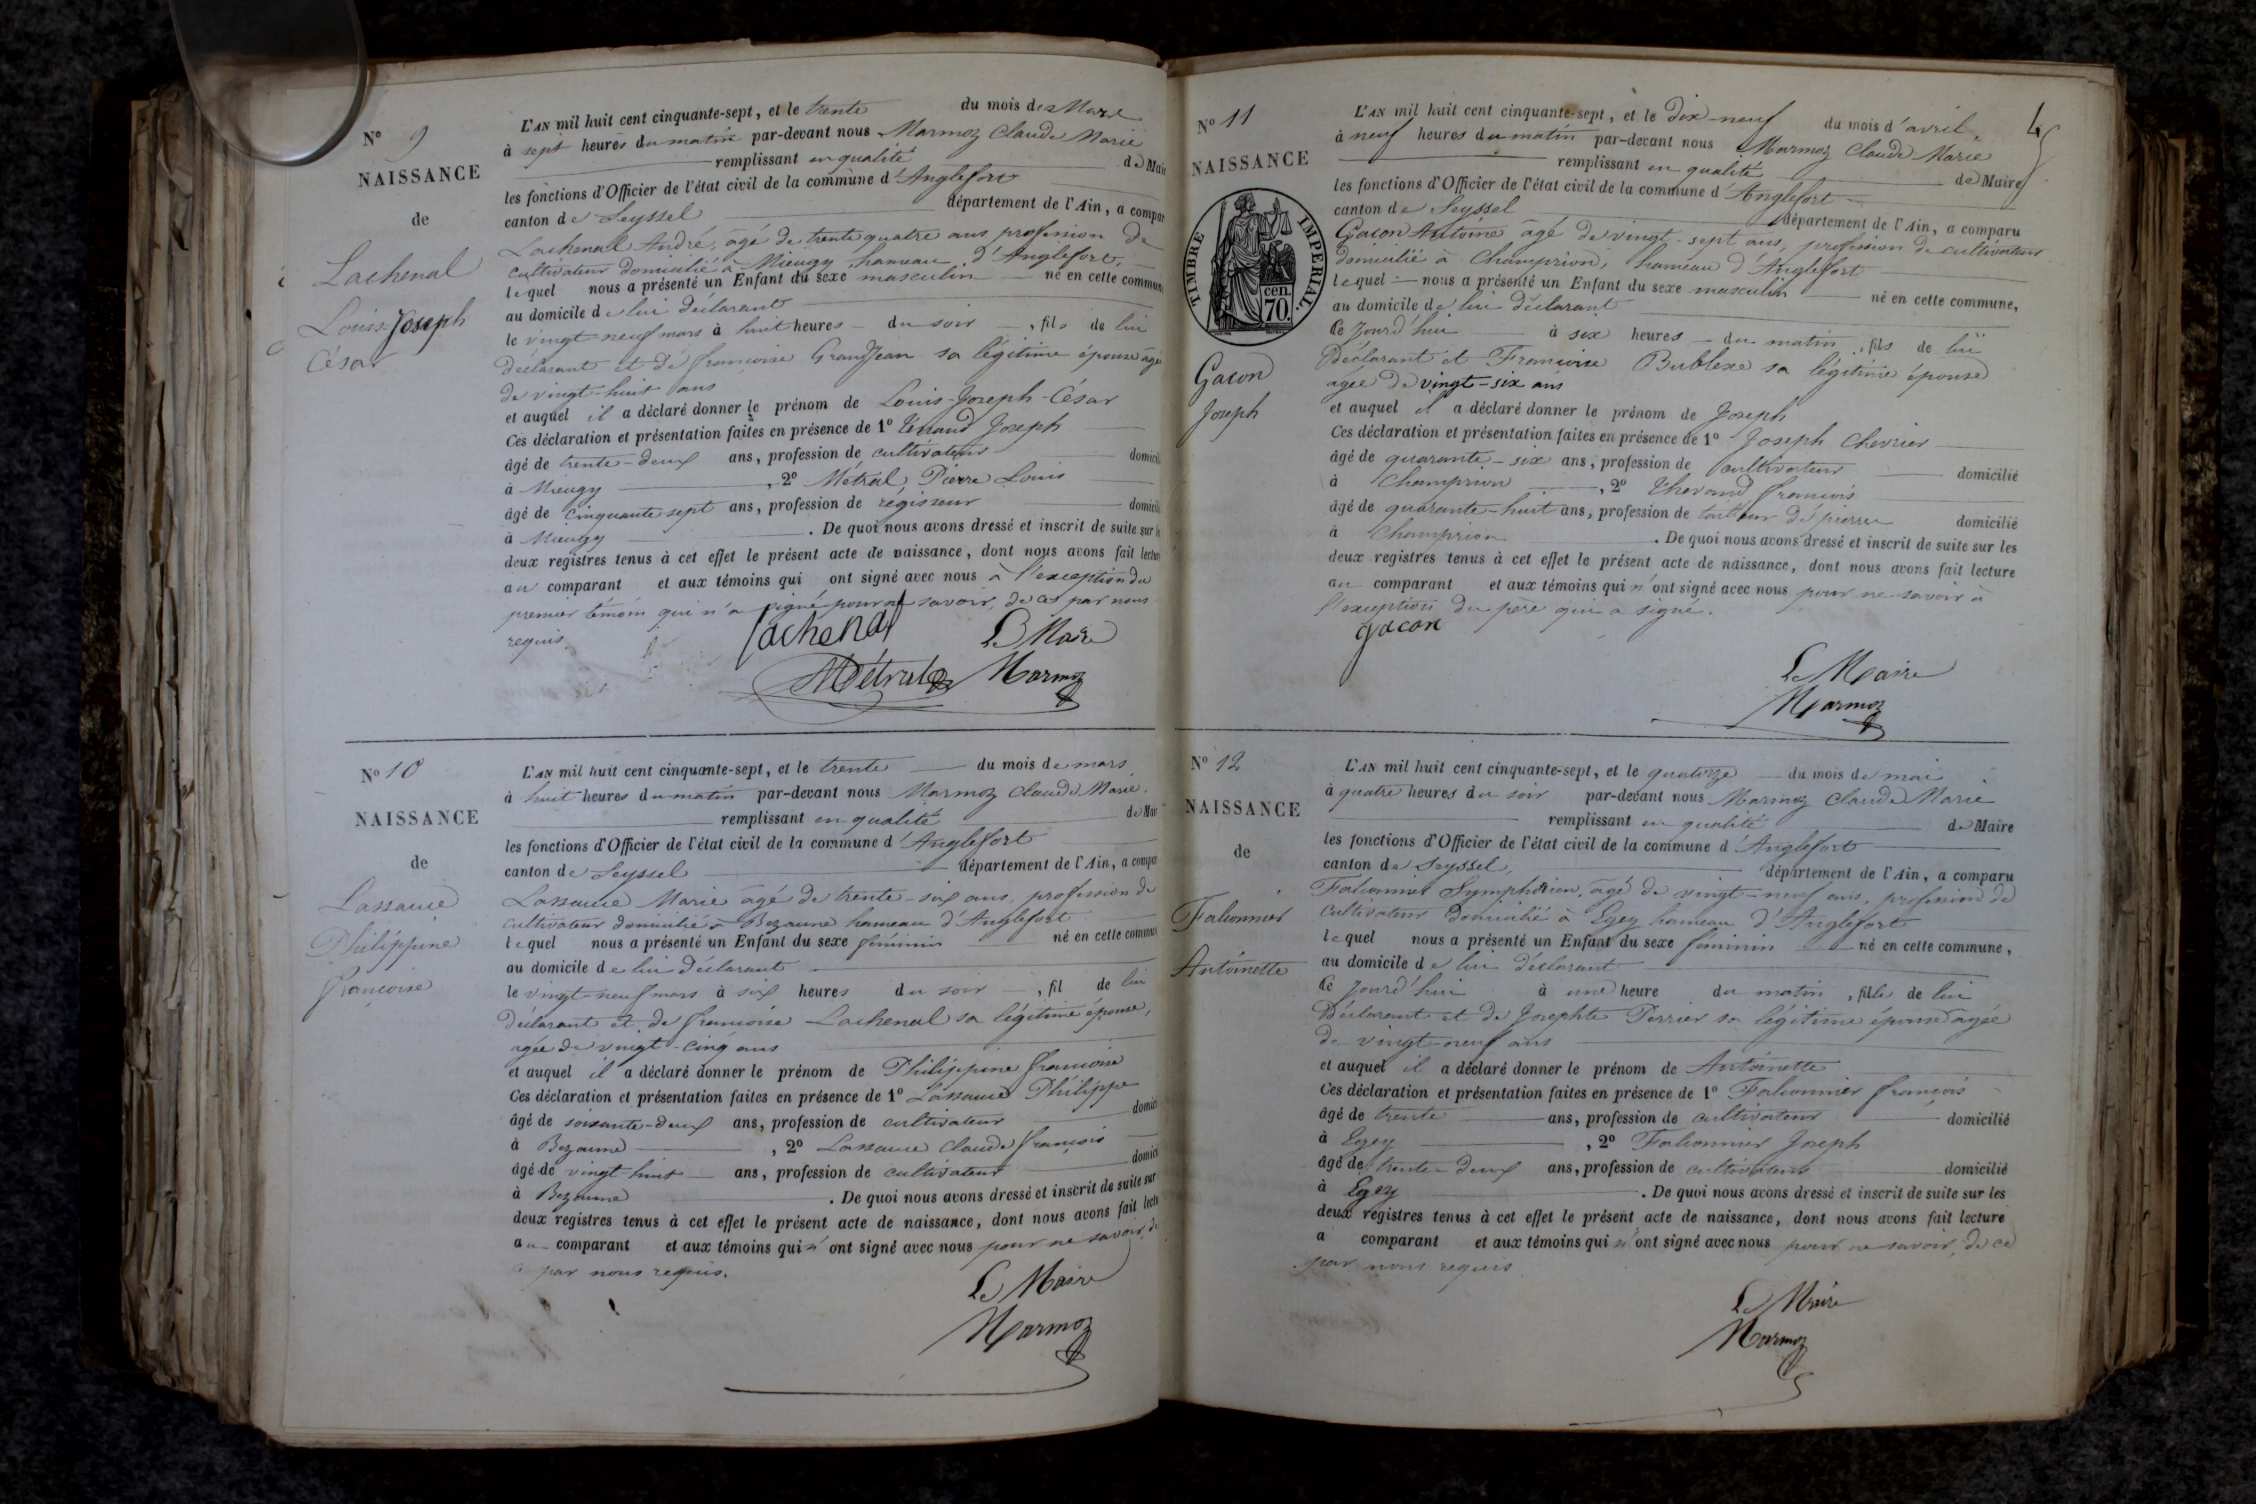 N° 9
NAISSANCE
de
Lachenal
Louis-Joseph
César
L'AN mil huit cent cinquante-sept, et le trente du mois de Mars
à sept heures du matin par-devant nous Marmoz Claude Marie
remplissant en qualité de Mair
les fonctions d'Officier de l'état civil de la commune d'Anglefort
canton de Seyssel département de l'Ain, a compar
Lachenal André, âgé de trente quatre ans profession de
cultivateur domicilié à Mieugy hameau d'Anglefort,
lequel nous a présenté un Enfant du sexe masculin né en cette commun
au domicile de lui déclarant
le vingt-neuf mars à huit heures du soir, fils de lui
déclarant et de françoise GrandJean sa légitime épouse âgé
de vingt-huit ans
et auquel il a déclaré donner le prénom de Louis-Joseph-César
Ces déclaration et présentation faites en présence de 1° Joseph
âgé de trente-deux ans, profession de cultivateur domicili
à Mieugy, 2° Métral, Pierre Louis
âgé de cinquante sept ans, profession de régisseur domicili
à Mieugy. De quoi nous avons dressé et inscrit de suite sur le
deux registres tenus à cet effet le présent acte de naissance, dont nous avons fait lectur
au comparant et aux témoins qui ont signé avec nous à l'exception du
premier témoin qui n'a signé pour ne savoir, de ce par nous
requis.
Lachenal Le Maire
Métral Marmoz
N° 10
NAISSANCE
de
Lassauce
Philippine
françoise
L'AN mil huit cent cinquante-sept, et le trente du mois de mars
à huit heures du matin par-devant nous Marmoz Claude Marie.
remplissant en qualité de Mair
les fonctions d'Officier de l'état civil de la commune d'Anglefort
canton de Seyssel département de l'Ain, a compar
Lassauce Marie âgé de trente-six ans, profession de
cultivateur domicilié à Bezonne hameau d'Anglefort
lequel nous a présenté un Enfant du sexe féminin né en cette commun
au domicile de lui déclarant
le vingt-neuf mars à six heures du soir, fil de lui
déclarant et de françoise Lachenal sa légitime épouse,
agée de vingt-cinq ans
et auquel il a déclaré donner le prénom de Philippine françoise
Ces déclaration et présentation faites en présence de 1° Lassauce Philippe
âgé de soixante-deux ans, profession de cultivateur domici
à Bezonne, 2° Lassauce Claude françois
âgé de vingt-huit ans, profession de cultivateur domici
à Bezonne. De quoi nous avons dressé et inscrit de suite sur
deux registres tenus à cet effet le présent acte de naissance, dont nous avons fait lectu
au comparant et aux témoins qui n'ont signé avec nous pour ne savoir, de
ce par nous requis.
Le Maire
Marmoz
N° 11
NAISSANCE
TIMBRE IMPERIAL.
cen.
70.
Gacon
Joseph
L'AN mil huit cent cinquante-sept, et le Dix-neuf du mois d'avril.
à neuf heures du matin par-devant nous Marmoz Claude Marie
remplissant en qualité de Maire
les fonctions d'Officier de l'état civil de la commune d'Anglefort
canton de Seyssel département de l'Ain, a comparu
Gacon Antoine âgé de vingt-sept ans, profession de cultivateur
domicilié à Champrion, hameau d'Anglefort
lequel nous a présenté un Enfant du sexe masculin né en cette commune,
au domicile de lui déclarant
Ce Jourd'hui à six heures du matin, fils de lui
Déclarant et Françoise Bublexe sa légitime épouse
agée de vingt-six ans
et auquel il a déclaré donner le prénom de Joseph
Ces déclaration et présentation faites en présence de 1° Joseph Chevrier
âgé de quarante-six ans, profession de cultivateur domicilié
à Champrion, 2° françois
âgé de quarante-huit ans, profession de tailleur de pierre domicilié
à Champrion. De quoi nous avons dressé et inscrit de suite sur les
deux registres tenus à cet effet le présent acte de naissance, dont nous avons fait lecture
au comparant et aux témoins qui n'ont signé avec nous pour ne savoir à
l'exception du père qui a signé.
gacon
Le Maire
Marmoz
N° 12
NAISSANCE
de
Falconnier
Antoinette
L'AN mil huit cent cinquante-sept, et le quatorze du mois de mai
à quatre heures du soir par-devant nous Marmoz Claude Marie
remplissant en qualité de Maire
les fonctions d'Officier de l'état civil de la commune d Anglefort
canton de Seyssel, département de l'Ain, a comparu
Falconnier Symphorien, âgé de vingt-neuf ans, profession de
cultivateur domicilié à Egey hameau d'Anglefort
lequel nous a présenté un Enfant du sexe féminin né en cette commune,
au domicile de lui déclarant
Ce Jourd'hui à une heure du matin, fille de lui
Déclarant et de Josephte Perrier sa légitime épouse agée
de vingt-neuf ans
et auquel il a déclaré donner le prénom de Antoinette
Ces déclaration et présentation faites en présence de 1° Falconnier françois
âgé de trente ans, profession de cultivateur domicilié
à Egey, 2° Falconnier Joseph
âgé de trente-deux ans, profession de cultivateur domicilié
à Egey. De quoi nous avons dressé et inscrit de suite sur les
deux registres tenus à cet effet le présent acte de naissance, dont nous avons fait lecture
a comparant et aux témoins qui n'ont signé avec nous pour ne savoir, de ce
par nous requis
Le Maire
Marmoz